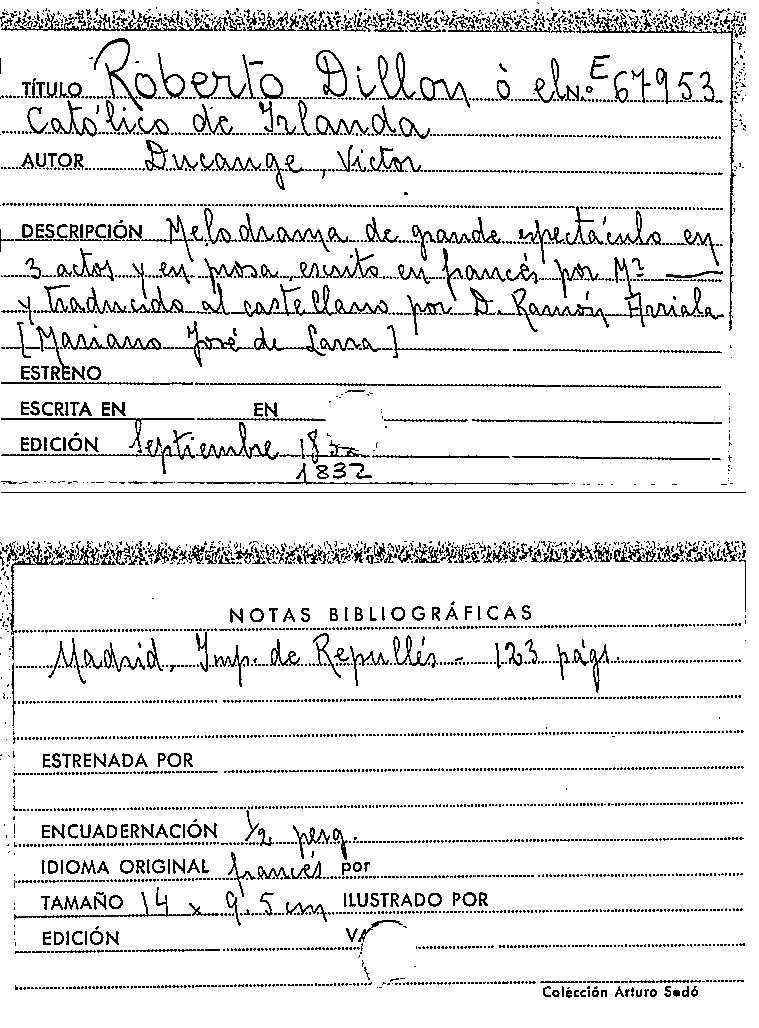 TÍTULO Roberto Dillon ò el N.º E 67953
Católico de Irlanda
AUTOR Ducange, Victor
DESCRIPCIÓN Melodrama de grande espectáculo en
3 actos y en prosa, escrito en francés por Mr —
y traducido al castellano por D. Ramón Arriala
[Mariano José de Larra]
ESTRENO
ESCRITA EN EN
EDICIÓN Septiembre
1832
NOTAS BIBLIOGRÁFICAS
Madrid, Imp. de Repullés - 123 págs.
ESTRENADA POR
ENCUADERNACIÓN 1/2 perg.
IDIOMA ORIGINAL francés por
TAMAÑO 14 x 9.5 cm ILUSTRADO POR
EDICIÓN
Colección Arturo Sedó